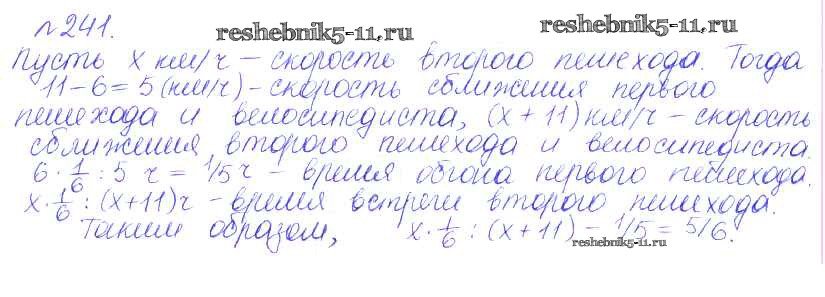 №241. reshebnik5-11.ru reshebnik5-11.ru
Пусть х км/ч – скорость второго пешехода. Тогда
11-6=5 (км/ч) - скорость сближения первого
пешехода и велосипедиста, (х+11) км/ч – скорость
сближения второго пешехода и велосипедиста.
6·1/6 : 5 ч = 1/5 ч - время обгона первого пешехода.
х·1/6 : (х+11) ч - время встречи второго пешехода.
Таким образом, х·1/6 : (х+11) - 1/5 = 5/6.
reshebnik5-11.ru